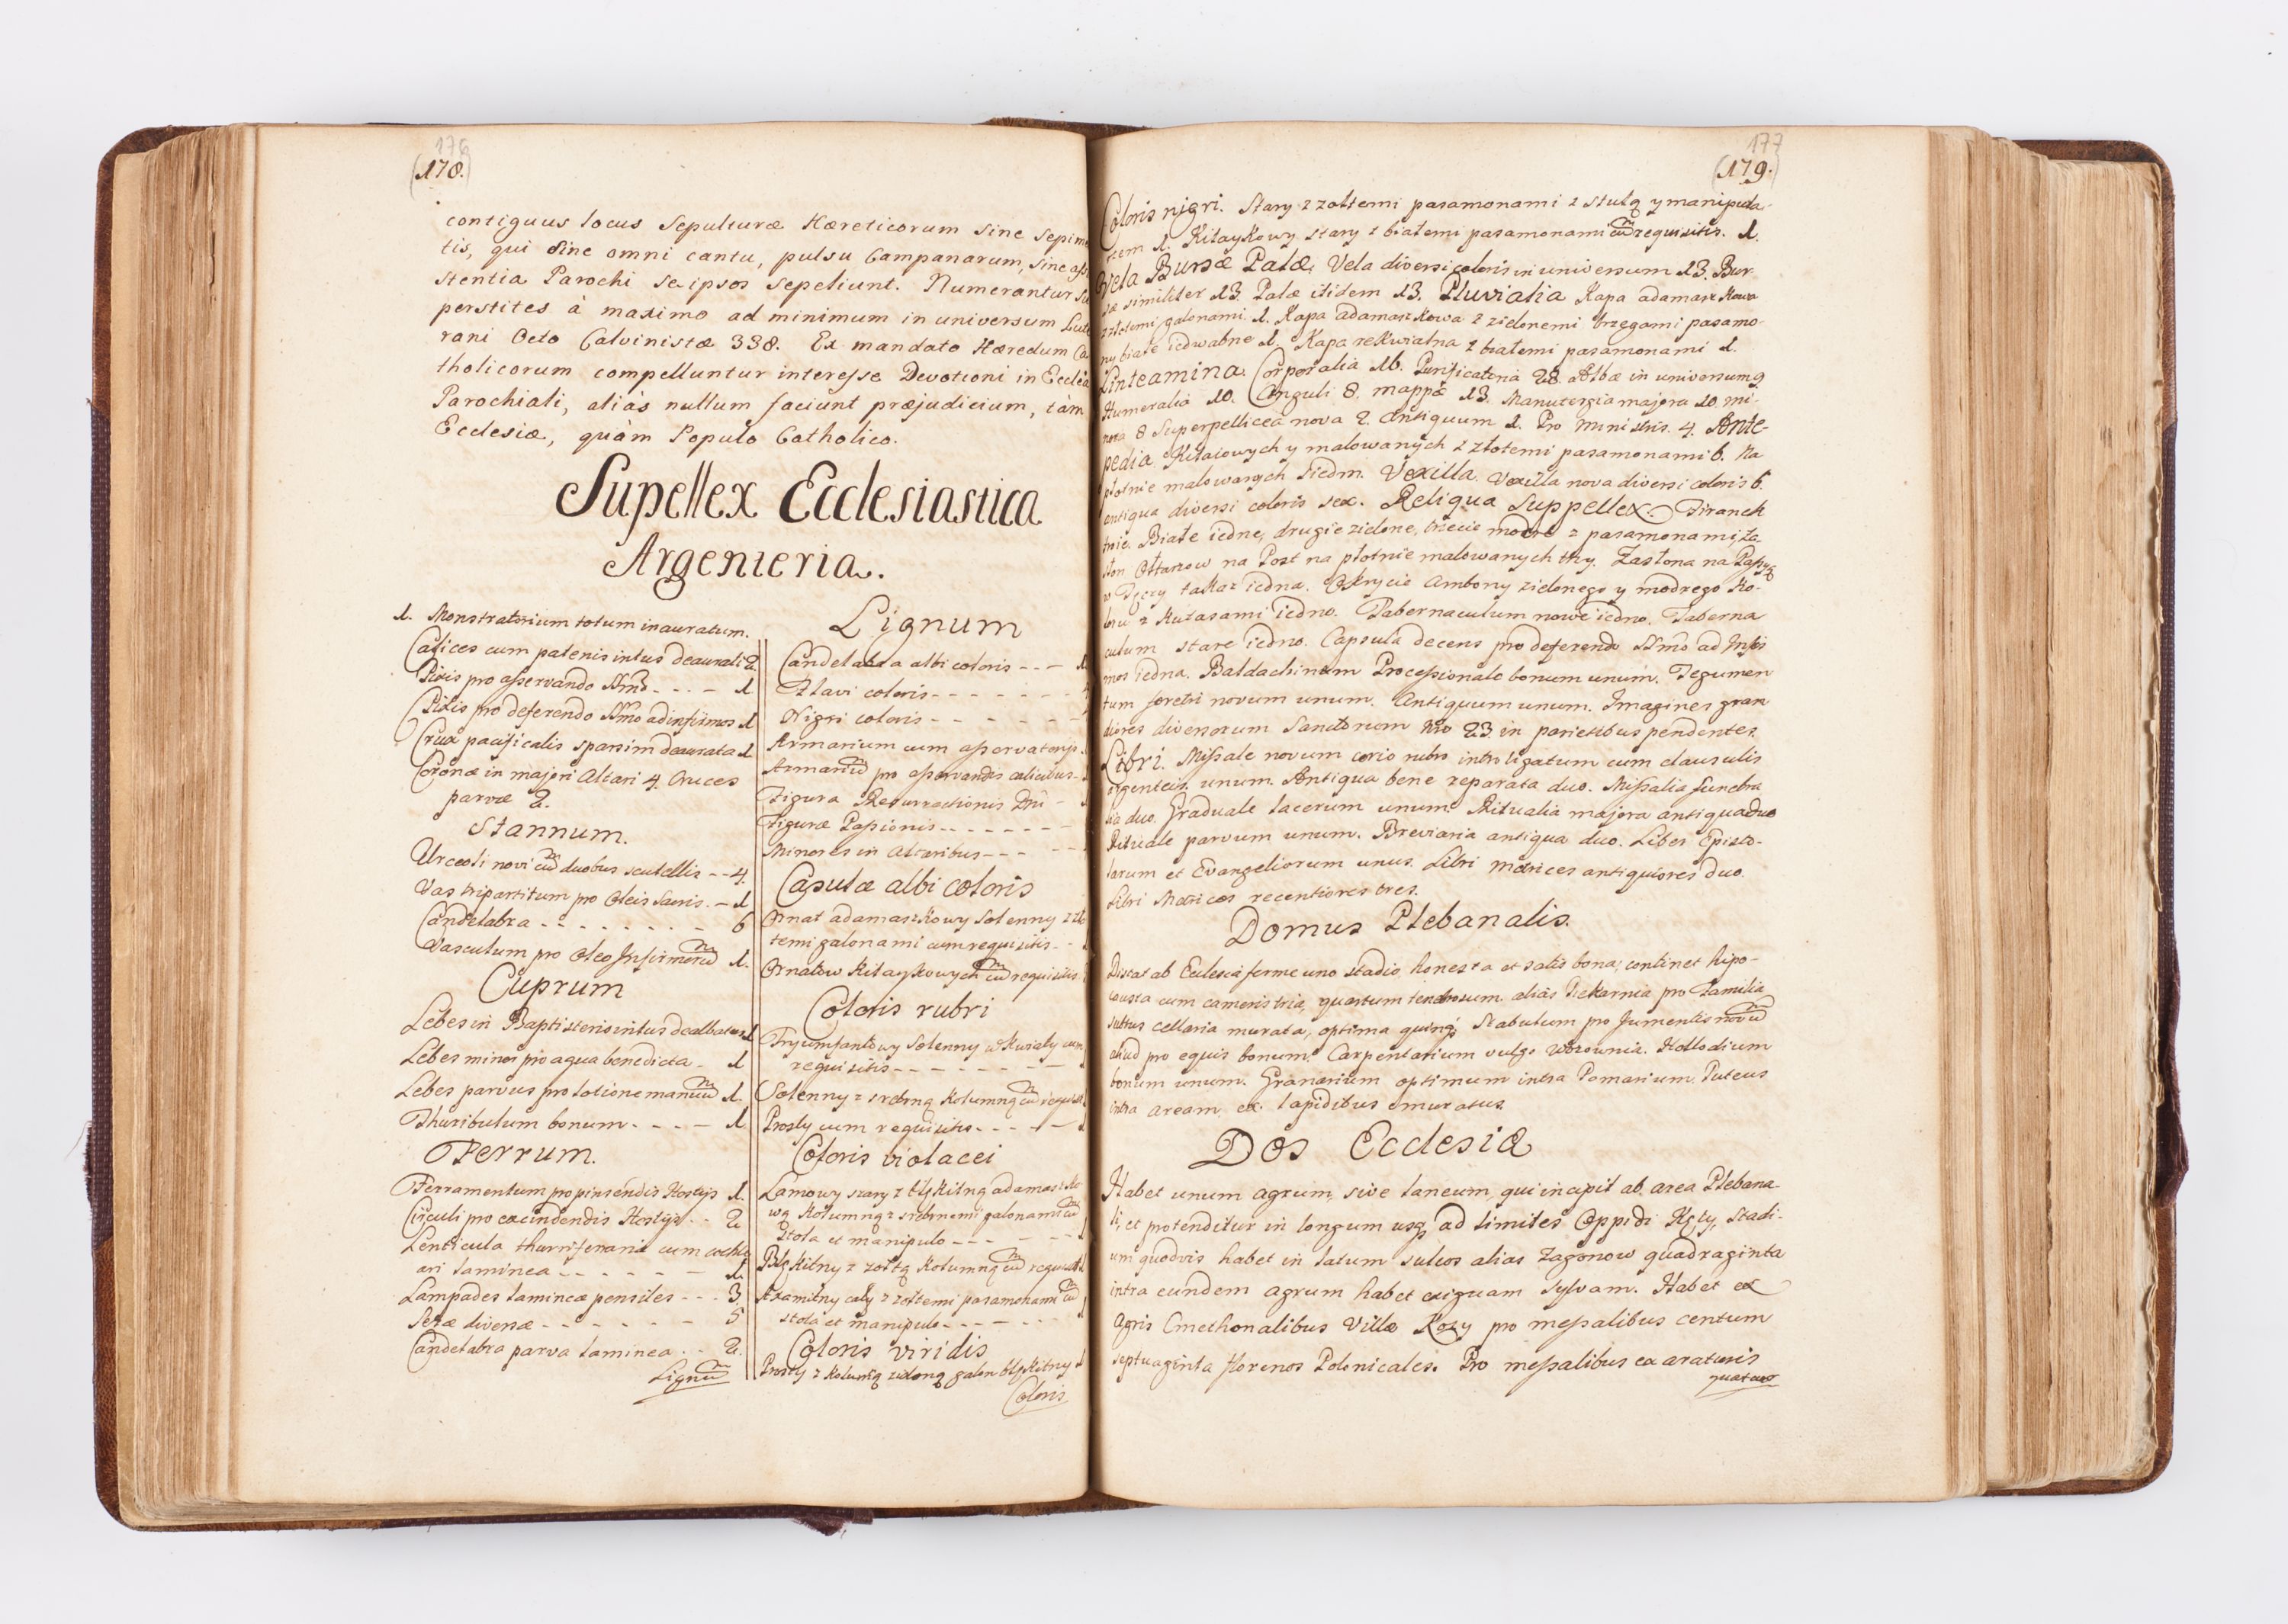 176
(178.)
contiguus locus Sepulturæ Hæreticorum sine sepime
tis, qui sine omni cantu, pulsu Campanarum, sine assi
stentia Parochi se ipsos sepeliunt. Numerantur su
perstites à maximo ad minimum in universum Luthe
rani Octo Calvinistæ 338. Ex mandato Hæredum Ca
tholicorum compelluntur interesse Devotioni in Ecclesia
Parochiali, aliàs nullum faciunt præjudicium, tàm
Ecclesiæ, quàm Populo Catholico.
Supellex Ecclesiastica
Argenteria.
1. Monstratorium totum inauratum.
Calices cum patenis intus deaurati 2.
Pixis pro asservando SSmo - - - - 1
Pixis pro deferendo SSmo ad infirmos 1
Crux pacificalis sparsim deaurata 1
Coronæ in majori Altari 4. Cruces
parvæ 2.
Stannum.
Urceoli novi cum duobus scutellis - - 4.
Vas tripartitum pro Oleis Sacris. - 1
Candelabra - - - - - - - - 6
Vasculum pro Oleo Infirmorum 1.
Cuprum
Lebes in Baptisterio intus dealbatus 1
Lebes minor pro aqua benedicta - 1
Lebes parvus pro lotione manuum 1.
Thuribulum bonum - - - - 1.
Ferrum.
Ferramentum pro pinsendis Hostijs 1.
Circuli pro excindendis Hostijs - - 2
Lenticula thurriferaria cum cochle
ari laminea - - - - - - 1.
Lampades lamineæ pensiles - - - 3.
Seræ diversæ - - - - - - 5
Candelabra parva laminea - - 2.
Lignum
Lignum
Candelabra albi coloris - - - 1.
Flavi coloris - - - - - - -
Nigri coloris - - - - - -
Armarium cum asservatorijs.
Armarium pro asservandis calicibus -
Figura Resurrectionis Dni -
Figuræ Passionis - - - - - - -
Minores in Altaribus - - - - -
Casulæ albi coloris
Ornat adamaszkowy solenny z zło
temi galonami cum requisitis - -
Ornatow Kitaykowych cum requisitis
Coloris rubri
Tryumfantowy solenny w kwiaty cum
requisitis - - - - - - -
Solenny z srebrną kolumną cum requisit
Prosty cum requisitis - - - - -
Coloris violacei
Lamowy szary z błękitną adamaszko
wą kolumną z srebrnemi galonami cum
stola et manipulo - - - - -
Błękitny z zołtą kolumną cum requisit
Axamitny cały z zołtemi pasamonami cum
stola et manipulo - - - - - -
Coloris viridis
Prosty z kolumną zieloną galon błękitny
Coloris
177
(179.)
Coloris nigri. Stary z zołtemi pasamonami z stułą y manipula-
rzem 1. Kitaykowy stary z białemi pasamonami cum requisitis. 1.
Vela Bursæ Palæ, Vela diversi coloris in universum 13. Bur-
sæ similiter 13. Palæ itidem 13. Pluvialia Kapa adamaszkowa
z złotemi galonami 1. Kapa adamaszkowa z zielonemi brzegami pasamo-
ny białe iedwabne 1. Kapa rekwialna z białemi pasamonami 1.
Linteamina. Corporalia 16. Purificateria 28. Albæ in universum 9
Humeralia 10. Cinguli 8. mappæ 13. Manutergia majora 10. mi-
nora 8 Superpellicea nova 2. Antiquum 1. Pro Ministris. 4. Ante-
pedia Kitaiowych y malowanych z złotemi pasamonami 6. Na
płotnie malowanych siedm. Vexilla. Vexilla nova diversi coloris 6.
antiqua diversi coloris sex. Reliqua Suppellex. Firanek
troie. Białe iedne, drugie zielone, trzecie modre z pasamonami, Za-
słon Ołtarzow na Post na płotnie malowanych trzy. Zasłona na Passyą
w Tęczy takaz iedna. Okrycie Ambony zielonego y modrego ko-
loru z kutasami iedno. Tabernaculum nowe iedno. Taberna
culum stare iedno. Capsula decens pro deferendo SSmo ad Infir
mos iedna. Baldachinum Processionale bonum unum. Tegumen
tum feretri novum unum. Antiquum unum. Imagines gran
diores diversorum Sanctorum Nro 23 in parietibus pendentes.
Libri. Missale novum corio rubro introligatum cum clausulis
argenteis unum. Antiqua bene reparata duo. Missalia funebra
lia duo. Graduale lacerum unum. Ritualia majora antiqua duo
Rituale parvum unum. Breviaria antiqua duo. Liber Episto-
larum et Evangeliorum unus. Libri Metrices antiquiores duo.
Libri Metrices recentiores tres.
Domus Plebanalis.
Distat ab Ecclesia ferme uno stadio, honesta et satis bona; continet hipo-
causta cum cameris tria, quartum tenebrosum aliàs Piekarnia pro Familia
subtus cellaria murata, optima quinq; Stabulum pro Jumentis novum
aliud pro equis bonum. Carpentarium vulgo Wozownia. Hollodium
bonum unum. Granarium optimum intra Pomarium. Puteus
intra aream ex lapidibus muratus.
Dos Ecclesiæ
Habet unum agrum, sive laneum, qui incipit ab area Plebana-
li, et protenditur in longum usq; ad limites Oppidi Kęty, Stadi-
um quodvis habet in latum sulcos alias Zagonow quadraginta
intra eundem agrum habet exiguam sylvam. Habet ex
Agris Cmethonalibus Villæ Kozy pro messalibus centum
septuaginta florenos Polonicales. Pro messalibus ex araturis
quatuor